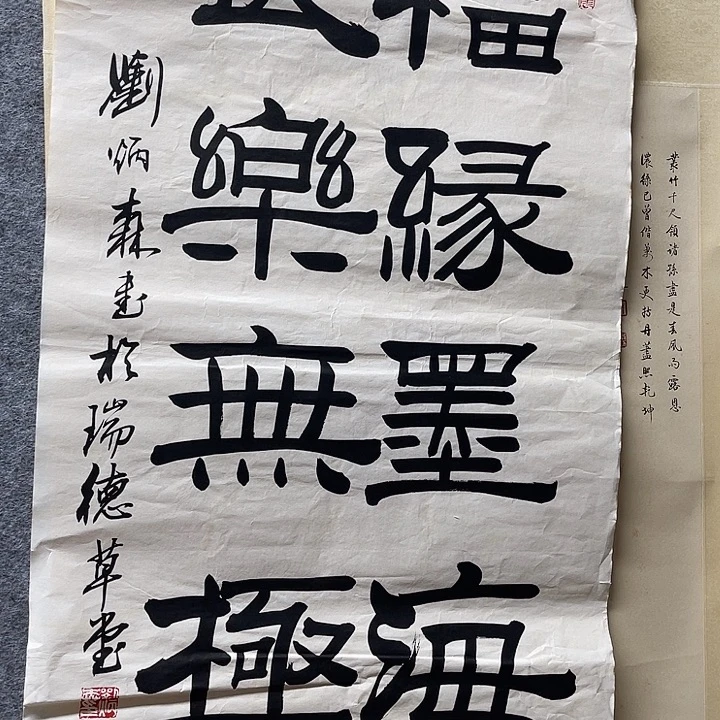 叢竹千尺領諸孫盡是春風雨露恩
濃綠已曾偕萬木更持丹藎照乾坤
福緣墨海
樂無極
劉炳森書於瑞德草堂